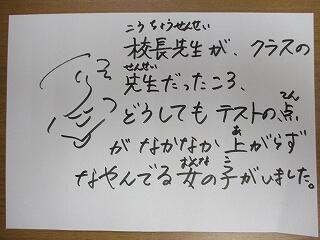 こうちょうせんせい
校長先生が、クラスの
せんせい
先生だったころ、
てん
どうしてもテストの点
あ
がなかなか上がらず
おんな こ
なやんでる女の子がしました。